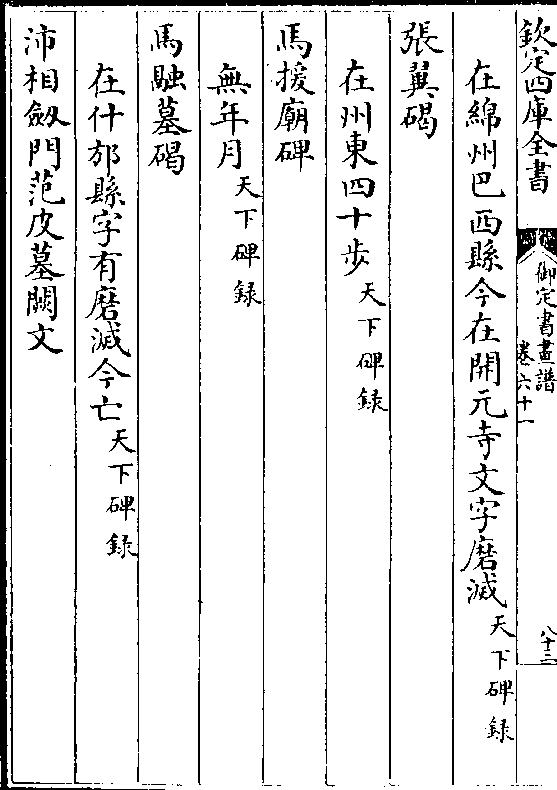 欽定四庫全書
御定書畫譜
卷六十一
八十三
在綿州巴西縣今在開元寺文字磨滅天下碑録
張翼碣
在州東四十步天下碑録
馬援廟碑
無年月天下碑録
馬融墓碣
在什邡縣字有磨滅今亡天下碑録
沛相劔門范皮墓闕文